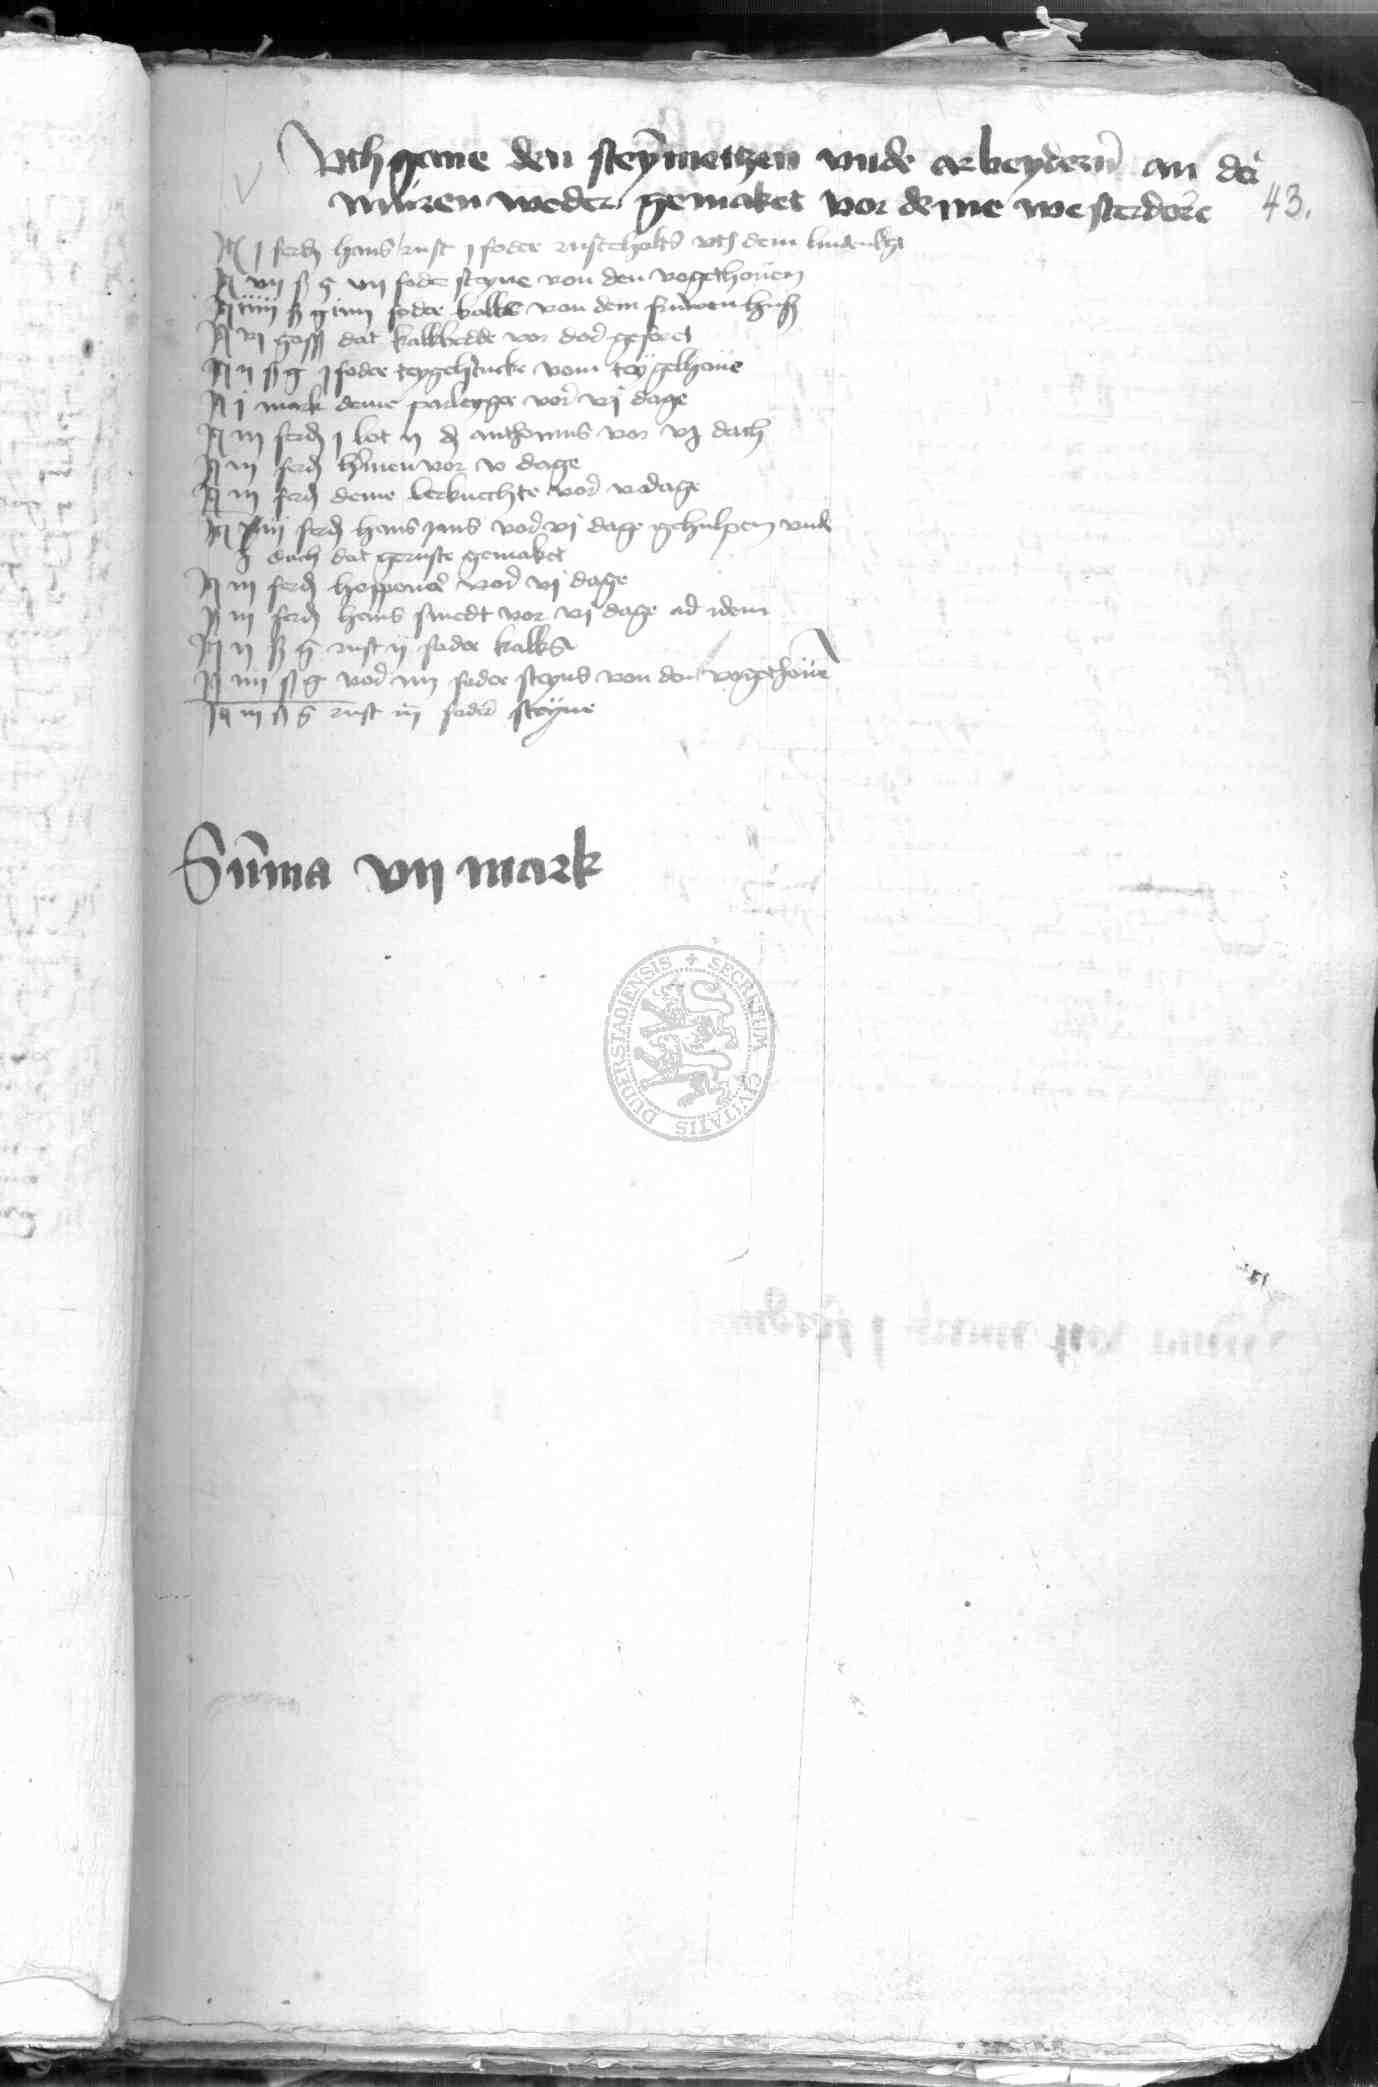 Vthgeue den steynmetzen vnde arbeydern an der
muren weder gemaket vor deme westerdore
43.
It j ferd hans rust j foder rusteholts vth dem
It vij ß g vij foder steyne von den vogethouen
It iiij ß g iiij foder kalks von dem
It vj dat kalkbedde vor dor geforet
It ij ß g j foder teygelstucke vom teygelhoue
It j mark deme parleyger vor vj dage
It iij ferd j lot ij d anthonius vor vj dach
It iij ferd hermen vor v dage
It iij ferd deme berknechte vor v dage
It iij ferd hans jans vor vj dage gehulpen vnde
j dach dat geruste gemaket
It iij ferd vor vj dage
It iij ferd hans smedt vor vj dage ad idem
It ij ß g rust ij foder kalks
It iiij ß g vor iiij foder steyns von den vogethoue
It iij ß g rust iij foder steyne
Summa vij mark
SECRETUM CIVITATIS DUDERSTADIENSIS